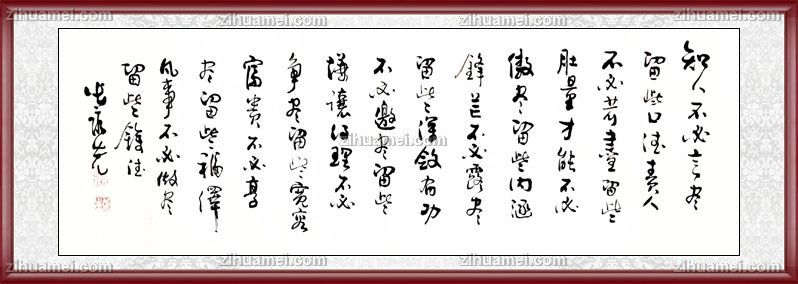 zihuamei.com zihuamei.com zihuamei.com
知人不必言尽
留些口德责人
不必苛尽留些
肚量才能不必
傲尽留些内涵
锋芒不必露尽
留些深敛有功
不必邀尽留些
谦让得理不必
争尽留些宽容
富贵不必享
尽留些福泽
凡事不必做尽
留些余德
zihuamei.com
zihuamei.com zihuamei.com zihuamei.com